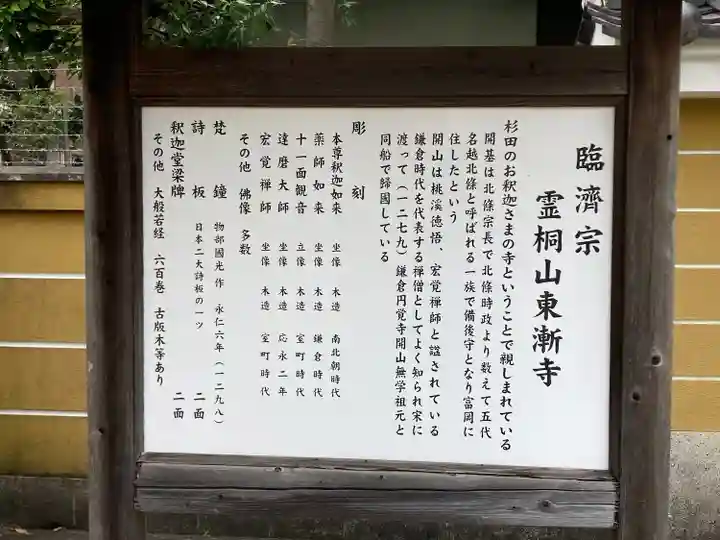 臨濟宗
霊桐山東漸寺
杉田のお釈迦さまの寺ということで親しまれている
開基は北條宗長で北條時政より数えて五代
名越北條と呼ばれる一族で備後守となり富岡に
住したという
開山は桃溪徳悟、宏覚禅師と諡されている
鎌倉時代を代表する禅僧としてよく知られ宋に
渡って（一二七九）鎌倉円覚寺開山無学祖元と
同船で歸國している
彫刻
本尊釈迦如来 坐像 木造 南北朝時代
薬師如来 坐像 木造 鎌倉時代
十一面観音 立像 木造 室町時代
達磨大師 坐像 木造 応永二年
宏覚禅師 坐像 木造 室町時代
その他 佛像 多数
梵鐘 物部國光作 永仁六年（一二九八）
詩板 日本二大詩板の一ツ 二面
釈迦堂梁牌 二面
その他 大般若経 六百巻 古版木等あり